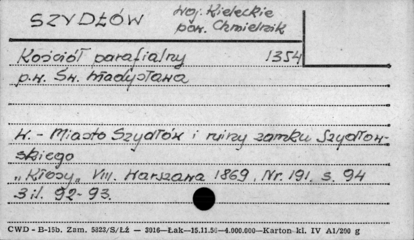 SZYDŁÓW
woj. Kieleckie
pow. Chmielnik
Kościół parafialny 1354
p.w. Św. Władysława
W. - Miasto Szydłów i ruiny zamku Szydłow-
skiego
„Kłosy” VIII. Warszawa 1869, Nr. 191, s. 94
3 il. 92-93.
CWD - B-15b. Zam. 5823/S/Łż — 3016—Łak—15.11.56—4.000.000—Karton kl. IV A1/200 g